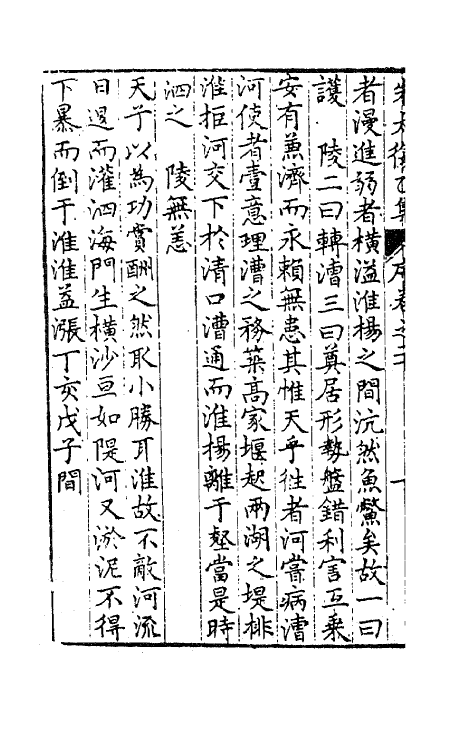 者漫進弱者橫溢淮楊之間沆然魚鱉矣故一曰
護　陵二曰轉漕三曰奠居形勢盤錯利害互乘
安有兼濟而永賴無患其惟天乎徃者河嘗病漕
河使者壹意理漕之務築高家堰起兩湖之堤排
淮拒河交下於清口漕通而淮揚離于壑當是時
泗之　陵無恙
天子以為功賞酬之然取小勝耳淮故不敵河流
日遏而灌泗海門生橫沙亘如隄河又淤泥不得
下暴而倒于淮淮益漲丁亥戊子間